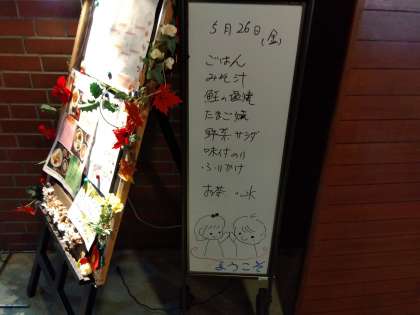 5月26日(金)
ごはん
みそ汁
鮭の塩焼
たまご焼
野菜サラダ
味付のり
ふりかけ
お茶・水
ようこそ